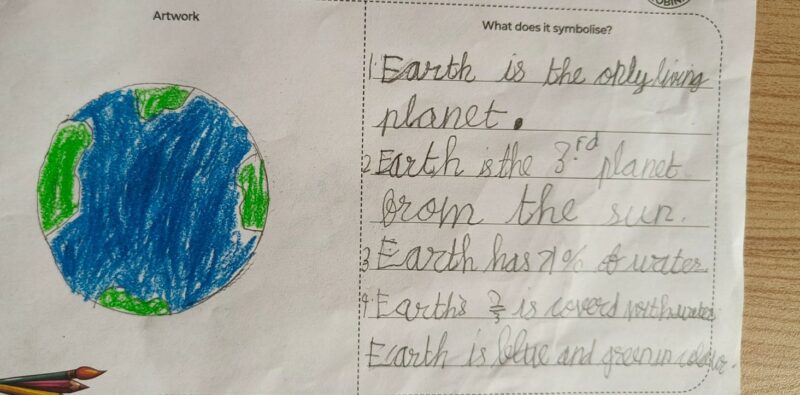 Artwork
What does it symbolise?
1. Earth is the only living
planet.
2 Earth is the 3rd planet
from the sun.
3 Earth has 71% of water
4. Earth's 2/3 is coverd with water
Earth is blue and green in colour.